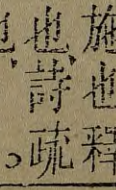 施也釋
也詩疏
也